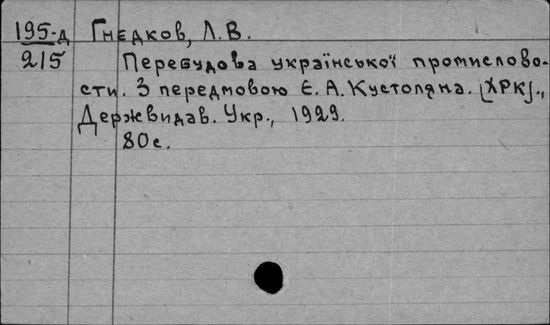 195-д Гнєдков, Л. В.
215 Перебудова української промислово-
сти. З передмовою Є. А. Кустоляна. [ХРК].,
Держвидав. Укр., 1929.
80 с.